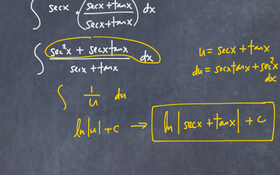 ∫ secx · (secx + tanx / secx + tanx) dx
∫ sec²x + secxtanx / secx + tanx dx
u = secx + tanx
du = secxtanx + sec²x dx
∫ 1/u du
ln|u| + c → ln|secx + tanx| + c